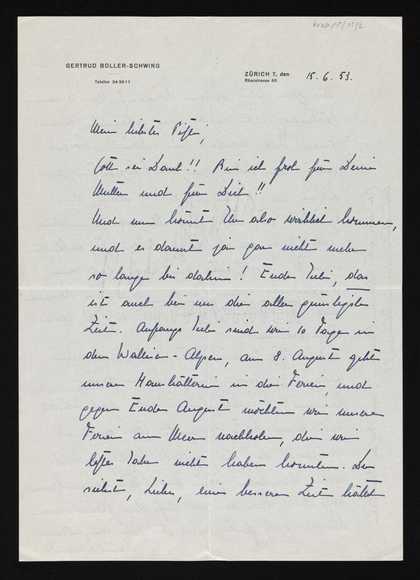 GERTRUD BOLLER-SCHWING
Telefon 34 38 11
ZÜRICH 7, den 15. 6. 53.
Mein liebster
Gott sei Dank!! Bin ich froh für Deine
Mutter und für Dich!!
Und nun könnt Ihr also wirklich kommen,
und es dauert ja gar nicht mehr
so lange bis dahin! Ende Juli, das
ist auch bei uns die aller günstigste
Zeit. Anfangs Juli sind wir 10 Tage in
den Walliser-Alpen, am 8. August geht
unsere Haushälterin in die Ferien, und
gegen Ende August möchten wir unsere
Ferien am Meer nachholen, die wir
letztes Jahr nicht haben konnten. Du
siehst, Lieber, eine bessere Zeit hättet